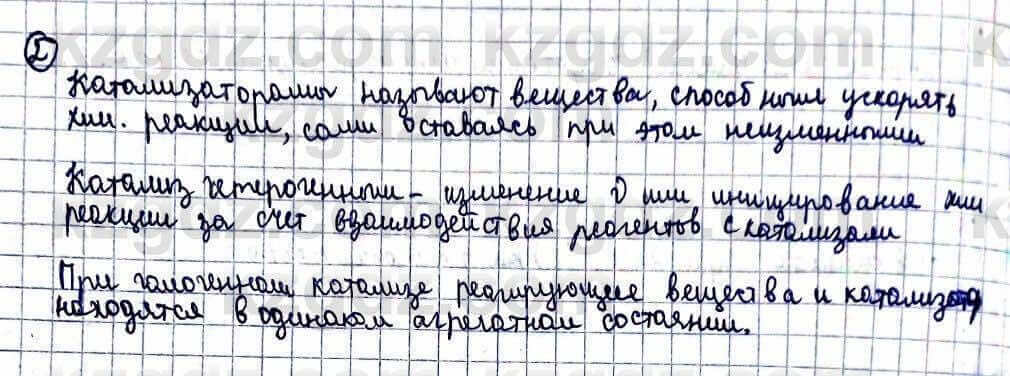 2
Катализаторами называют вещества, способные ускорять
хим. реакции, сами оставаясь при этом неизменными
Катализ гетерогенный – изменение υ или инициирование хим
реакции за счет взаимодействия реагентов с катализами
При гомогенном катализе реагирующие вещества и катализатор
находятся в одинаком агрегатном состоянии.